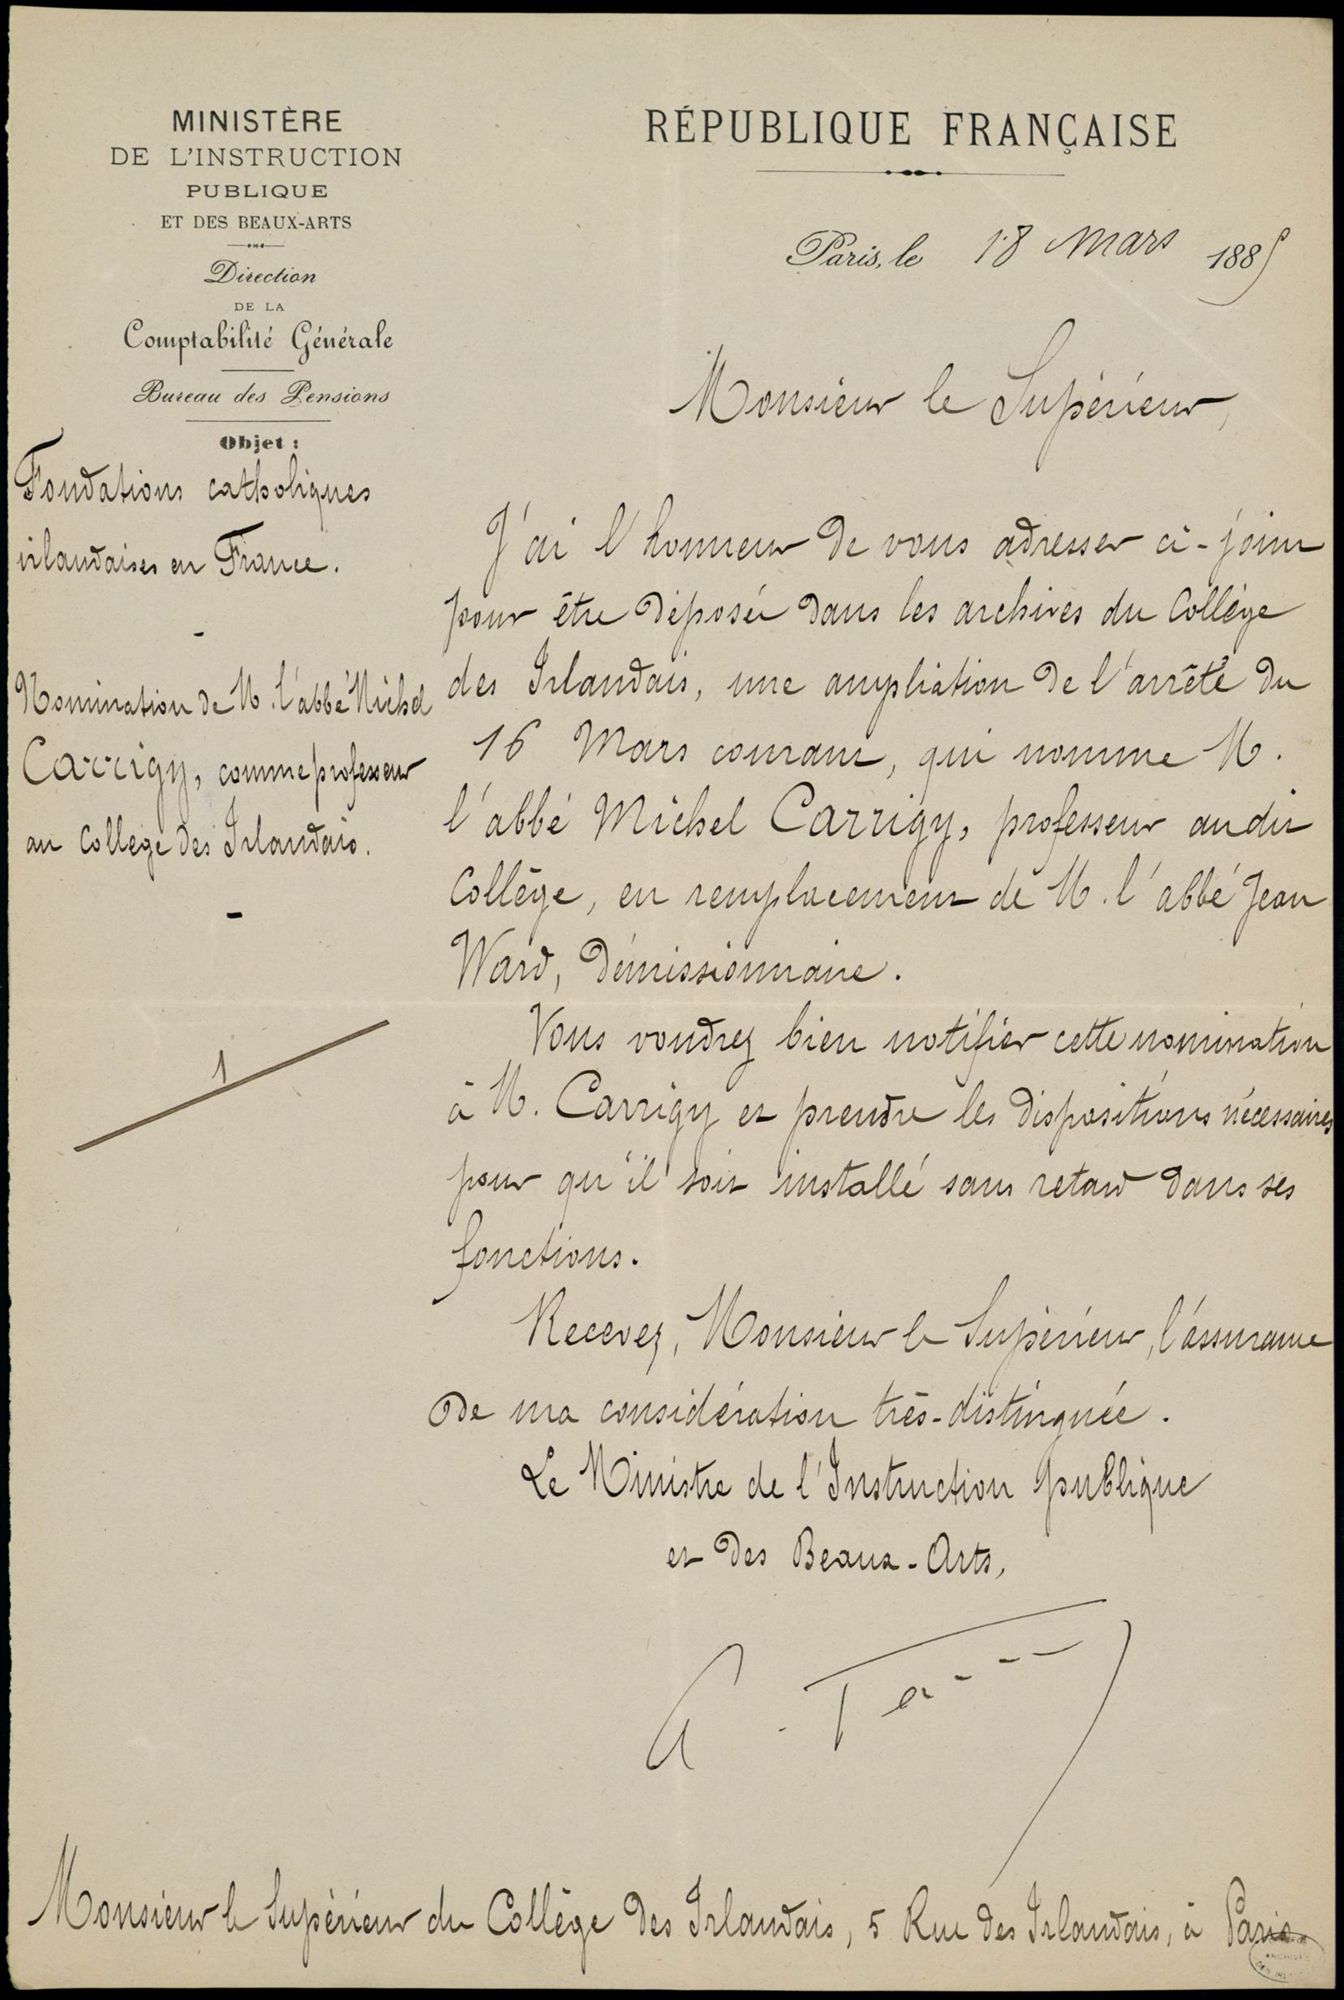 MINISTÈRE
DE L'INSTRUCTION
PUBLIQUE
ET DES BEAUX-ARTS
Direction
DE LA
Comptabilité Générale
Bureau des Pensions
Objet :
Fondations catholiques
irlandaises en France.
-
Nomination de M. l'abbé Michel
Carrigy, comme professeur
au Collège des Irlandais.
-
1
RÉPUBLIQUE FRANÇAISE
Paris, le 18 Mars 1885
Monsieur le Supérieur,
J'ai l'honneur de vous adresser ci-joint
pour être déposée dans les archives du Collège
des Irlandais, une ampliation de l'arrêté du
16 Mars courant, qui nomme M.
l'abbé Michel Carrigy, professeur audit
Collège, en remplacement de M. l'abbé Jean
Ward, démissionnaire.
Vous voudrez bien notifier cette nomination
à M. Carrigy et prendre les dispositions nécessaires
pour qu'il soit installé sans retard dans ses
fonctions.
Recevez, Monsieur le Supérieur, l'assurance
de ma considération très-distinguée.
Le Ministre de l'Instruction publique
et des Beaux-Arts,
Monsieur le Supérieur du Collège des Irlandais, 5 Rue des Irlandais, à Paris